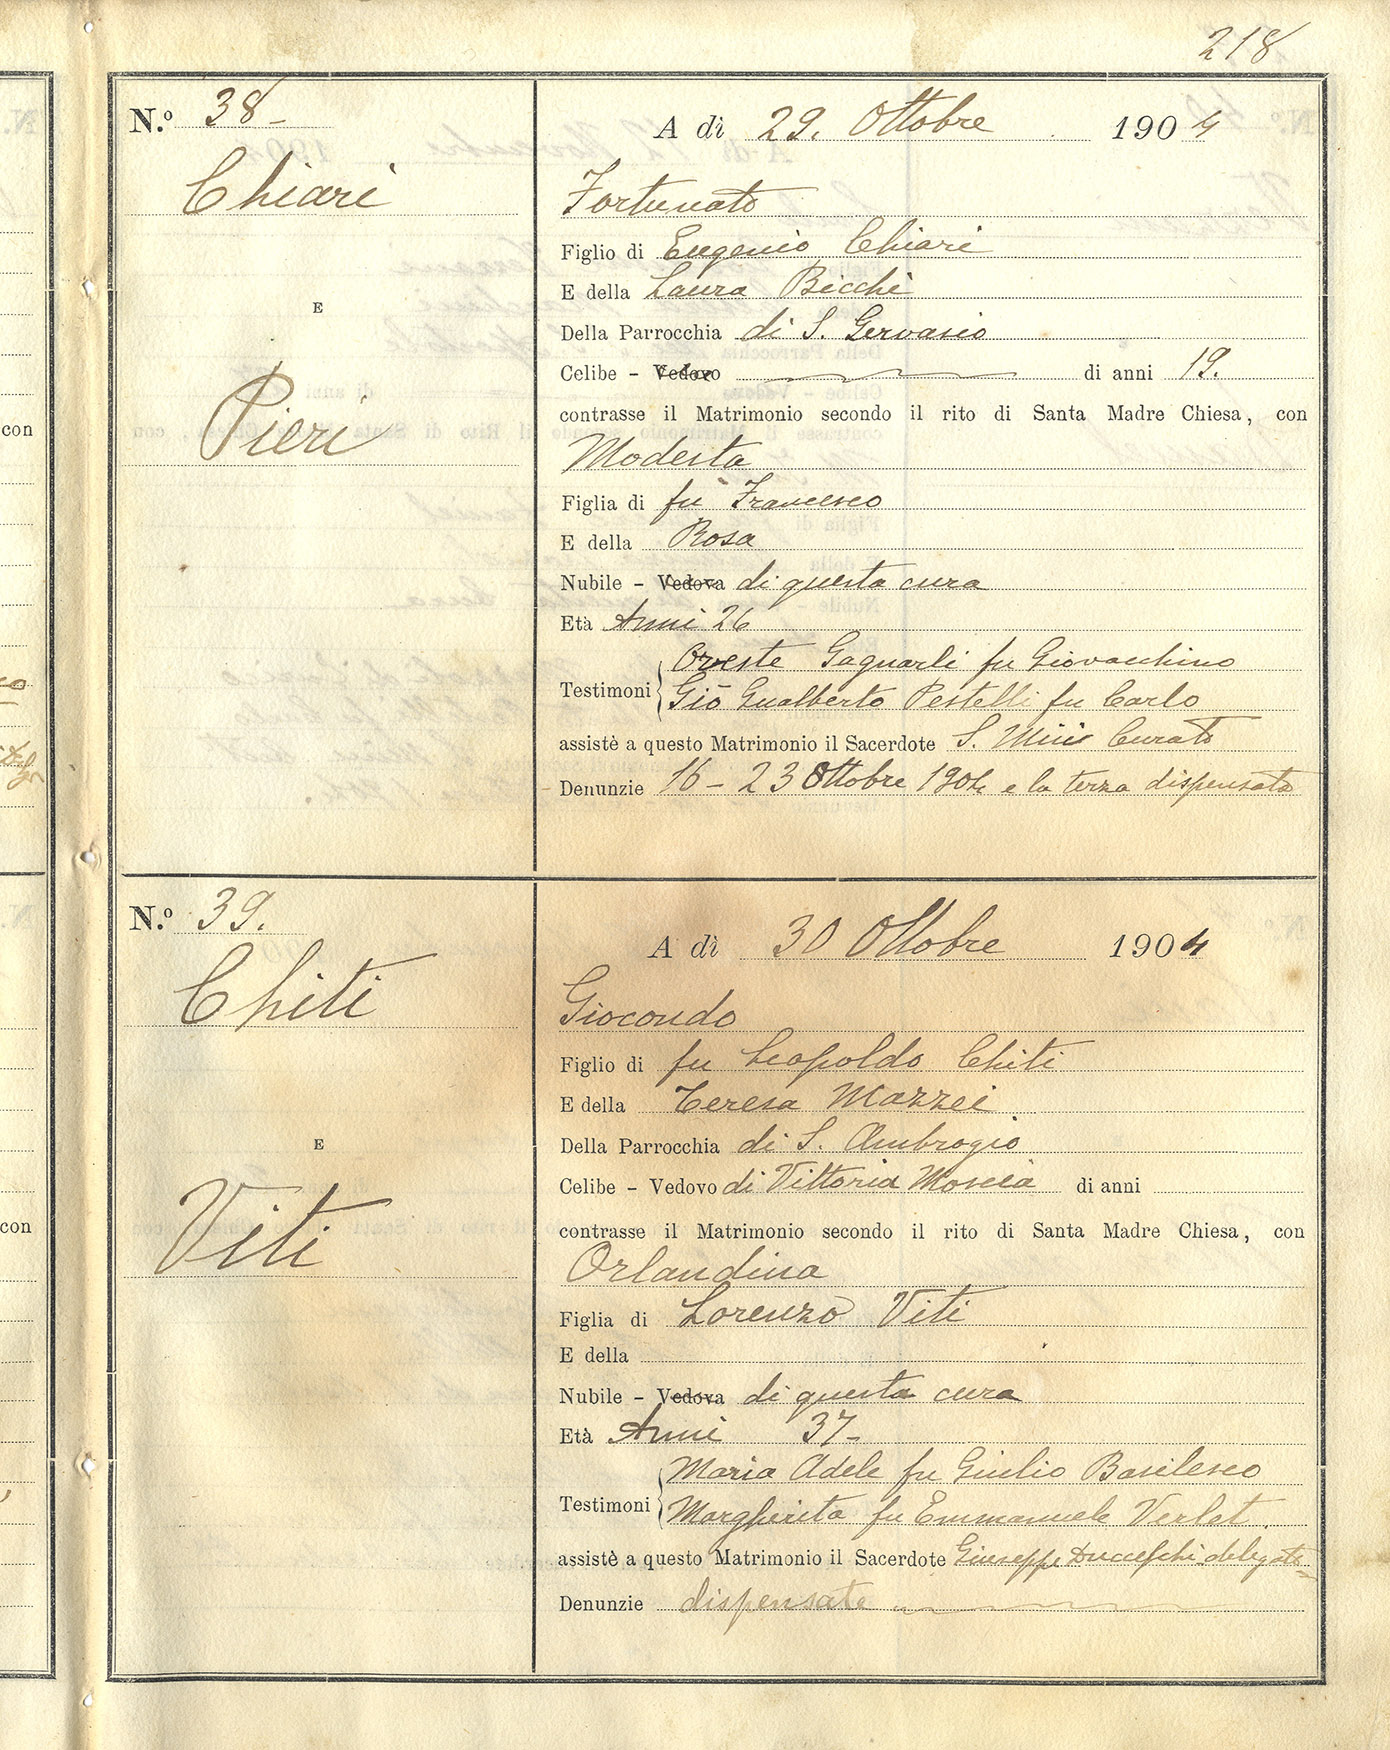 218
N.º 38-
Chiari
E
Pieri
A dì 29. Ottobre 1904
Fortunato
Figlio di Eugenio Chiari
E della Laura Bicchi
Della Parrocchia di S. Gervasio
Celibe - Vedovo di anni 19.
contrasse il Matrimonio secondo il rito di Santa Madre Chiesa, con
Modesta
Figlia di fu Francesco
E della Rosa
Nubile - Vedova di questa cura
Età Anni 26
Testimoni Oreste Gagnarli fu Giovacchino
Gio Gualberto Pestelli fu Carlo
assistè a questo Matrimonio il Sacerdote S. Curato
Denunzie 16 - 23 Ottobre 1904 e la terza dispensata
N.º 39.
Chiti
E
Viti
A dì 30 Ottobre 1904
Giocondo
Figlio di fu Leopoldo Chiti
E della Teresa Mazzei
Della Parrocchia di S. Ambrogio
Celibe - Vedovo di Vittoria di anni
contrasse il Matrimonio secondo il rito di Santa Madre Chiesa, con
Orlandina
Figlia di Lorenzo Viti
E della
Nubile - Vedova di questa cura
Età Anni 37-
Testimoni Maria Adele fu Giulio Basilesco
Margherita fu Emmanuele Verlet.
assistè a questo Matrimonio il Sacerdote Giuseppe delegato
Denunzie dispensate
con
con